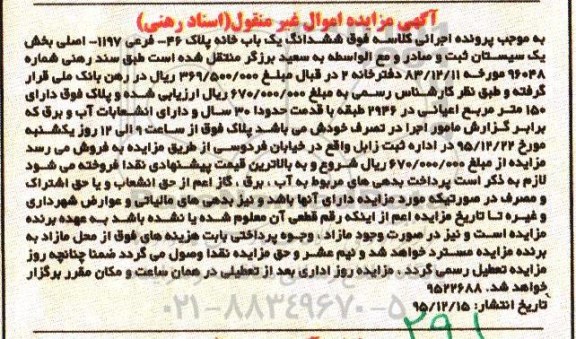 آگهی مزایده اموال غیر منقول(اسناد رهنی)
به موجب پرونده اجرائی کلاسه فوق ششدانگ یک باب خانه پلاک ۴۶- فرعی ۱۱۹۷- اصلی بخش
یک سیستان ثبت و صادر و مع الواسطه به سعید برزگر منتقل شده است طبق سند رهنی شماره
۹۶۰۴۸ مورخه ۸۳/۱۲/۱۱ دفترخانه ۲ در قبال مبلغ ۳۶۹/۵۰۰/۰۰۰ ریال در رهن بانک ملی قرار
گرفته و طبق نظر کارشناس رسمی به مبلغ ۶۷۰/۰۰۰/۰۰۰ ریال ارزیابی شده و پلاک فوق دارای
۱۵۰ متر مربع اعیانی در ۲۹۳۶ طبقه با قدمت حدودا ۳۰ سال و دارای انشعابات آب و برق که
برابر گزارش مامور اجرا در تصرف خودش می باشد پلاک فوق از ساعت ۹ الی ۱۲ روز یکشنبه
مورخ ۹۵/۱۲/۲۲ در اداره ثبت زابل واقع در خیابان فردوسی از طریق مزایده به فروش می رسد
مزایده از مبلغ ۶۷۰/۰۰۰/۰۰۰ ریال شروع و به بالاترین قیمت پیشنهادی نقدا فروخته می شود
لازم به ذکر است پرداخت بدهی های مربوط به آب ، برق ، گاز اعم از حق انشعاب و یا حق اشتراک
و مصرف در صورتیکه مورد مزایده دارای آنها باشد و نیز بدهی های مالیاتی و عوارض شهرداری
و غیره تا تاریخ مزایده اعم از اینکه رقم قطعی آن معلوم شده یا نشده باشد به عهده برنده
مزایده است و نیز در صورت وجود مازاد ، وجوه پرداختی بابت هزینه های فوق از محل مازاد به
برنده مزایده مسترد خواهد شد و نیم عشر و حق مزایده نقدا وصول می گردد ضمنا چنانچه روز
مزایده تعطیل رسمی گردد ، مزایده روز اداری بعد از تعطیلی در همان ساعت و مکان مقرر برگزار
خواهد شد. ۹۵۲۲۶۸۸
تاریخ انتشار: ۹۵/۱۲/۱۵
۰۲۱-۸۸۳۴۹۶۷۰-۵
۲۹۱